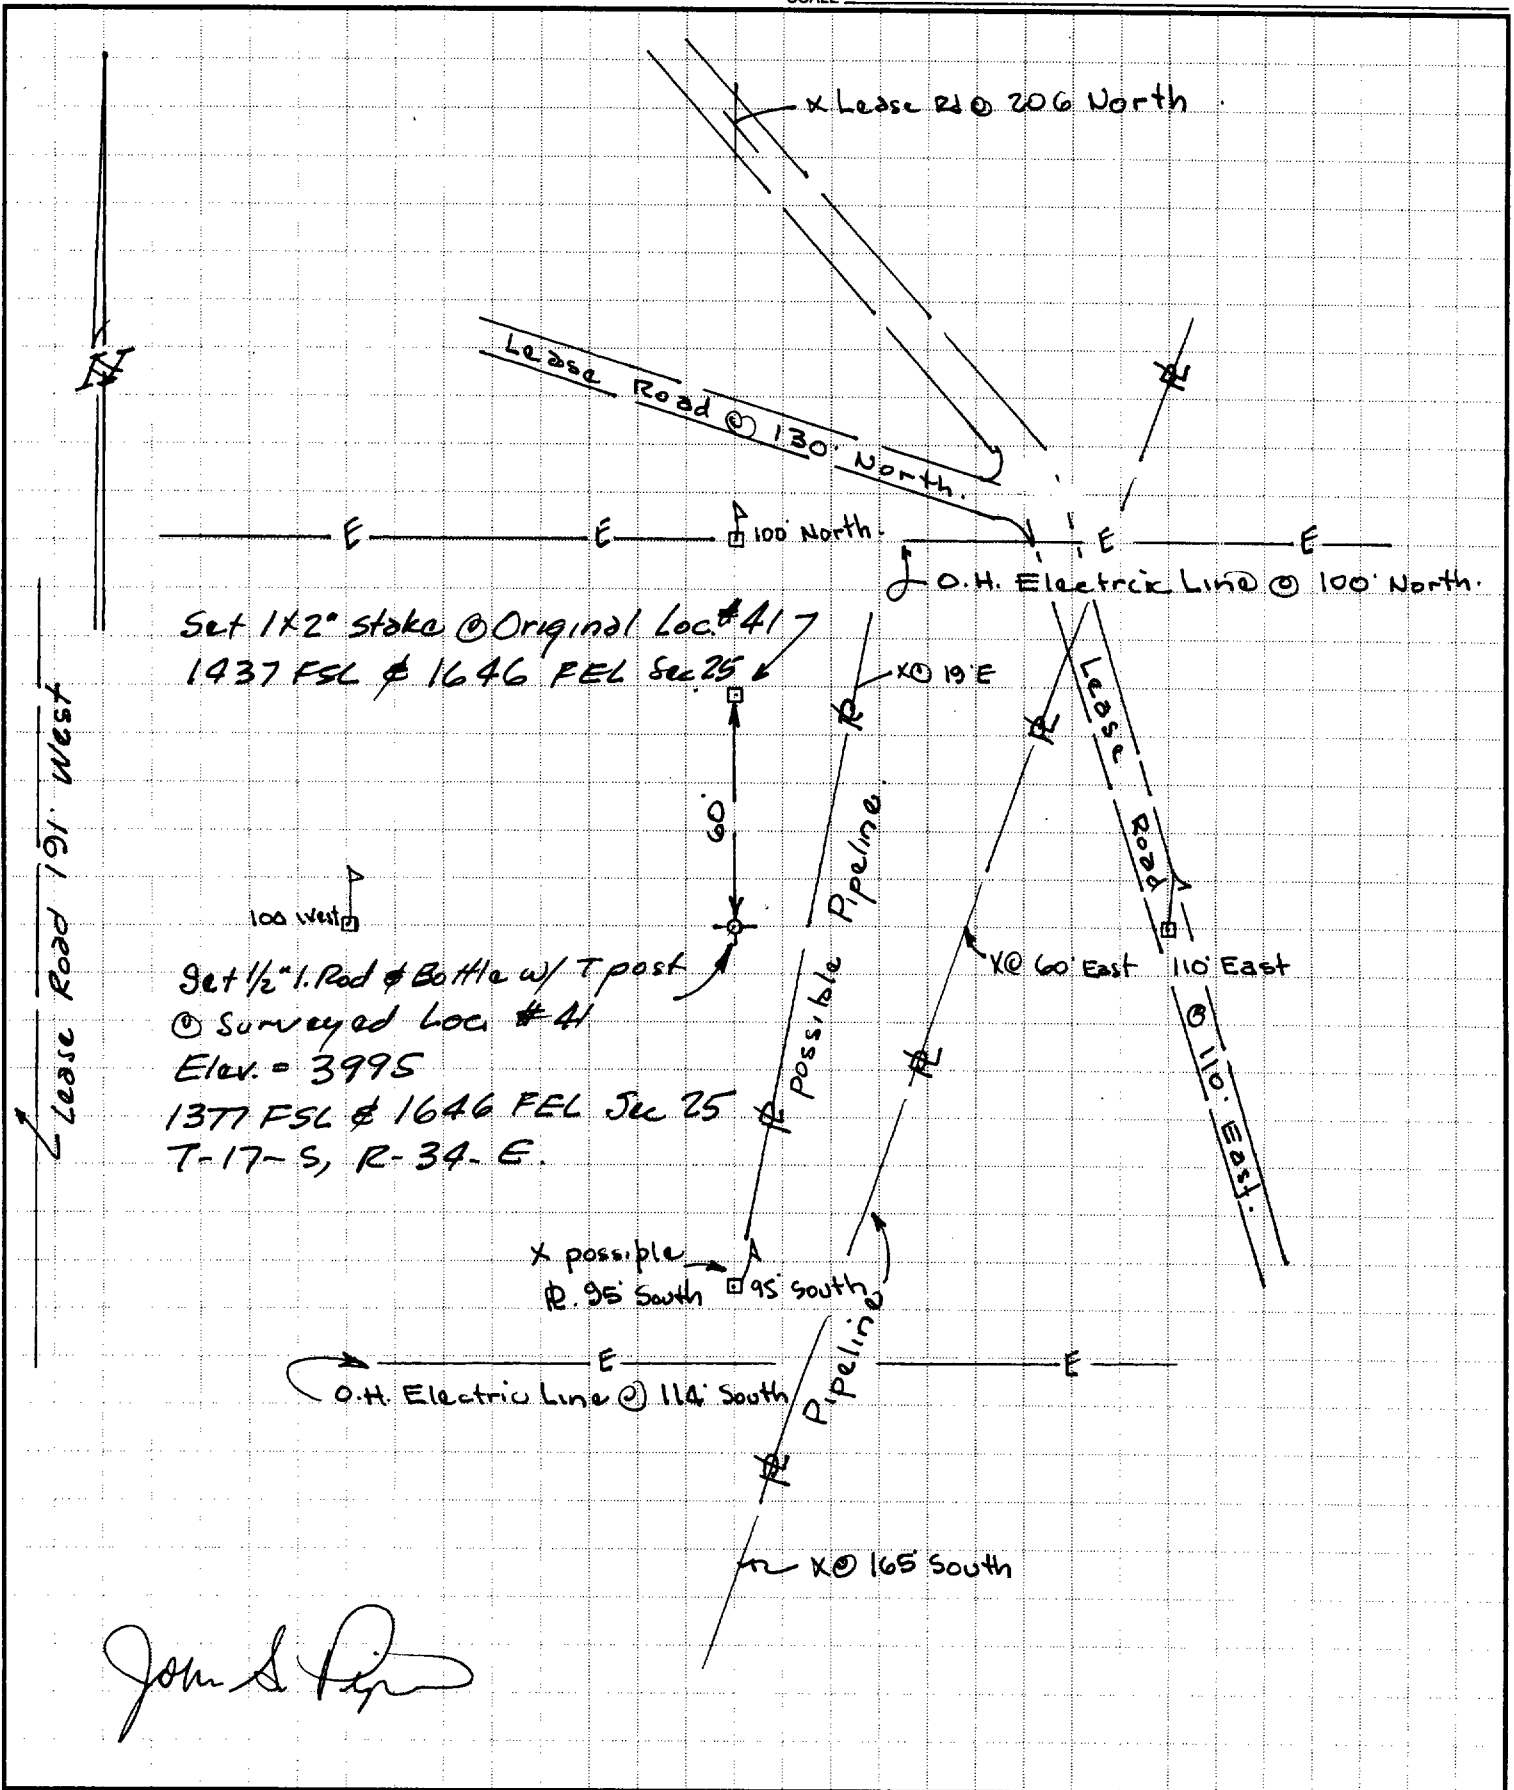 SCALE
x Lease Rd @ 206 North
N
Lease Road @ 130' North.
E E 100' North. E E
O.H. Electric Line @ 100' North.
Set 1X2" stake @ Original Loc. #41
1437 FSL & 1646 FEL Sec 25
X@ 19' E
PL
PL
PL
Lease Road @ 110' East.
60'
Possible Pipeline
Lease Road 191' West
100 West
X@ 60' East
110' East
Set 1/2" I. Rod & Bottle w/ T post
@ Surveyed Loc. #41
Elev. = 3995
1377 FSL & 1646 FEL Sec 25
T-17-S, R-34-E.
PL
PL
X possible
PL. 95' South
95' South
Pipeline
E E
O.H. Electric Line @ 114' South
PL
X@ 165' South
John S Piper